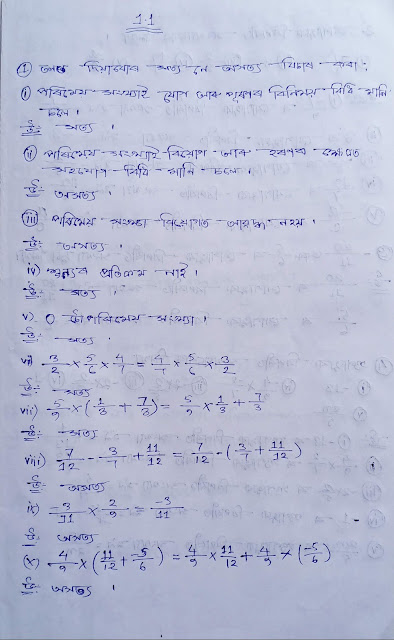 1.1
① তলত দিয়াবোৰ সত্য নে অসত্য বিচাৰ কৰা :
ⓘ পৰিমেয় সংখ্যাই যোগ আৰু পূৰণৰ বিনিময় বিধি মানি
চলে।
উঃ সত্য ।
ⓘⓘ পৰিমেয় সংখ্যাই বিয়োগ আৰু হৰণৰ ক্ষেত্ৰত
সহযোগ বিধি মানি চলে ।
উঃ অসত্য ।
iii) পৰিমেয় সংখ্যা বিয়োগত আৱদ্ধ নহয় ।
উঃ অসত্য ।
iv) শূন্যৰ প্ৰতিক্ৰম নাই ।
উঃ সত্য ।
v) 0 পৰিমেয় সংখ্যা ।
উঃ সত্য ।
vi) 3/2 × 5/6 × 4/7 = 4/7 × 5/6 × 3/2
উঃ সত্য
vii) 5/9 × (1/3 + 7/3) = 5/9 × 1/3 + 7/3
উঃ অসত্য
viii) 7/12 - 3/7 + 11/12 = 7/12 - (3/7 + 11/12)
উঃ অসত্য
ix) -3/11 × 2/9 = -3/11
উঃ অসত্য
(x) 4/9 × (11/12 + -5/6) = 4/9 × 11/12 + 4/9 × (-5/6)
উঃ অসত্য ।